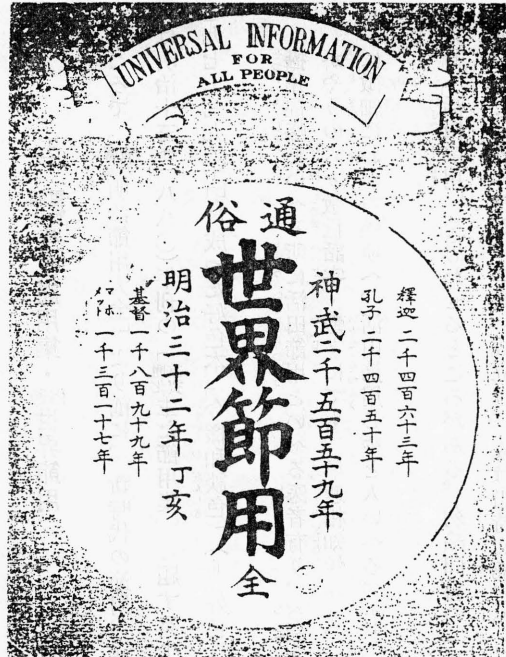 UNIVERSAL INFORMATION
FOR
ALL PEOPLE
通俗
釋迦 二千四百六十三年
孔子 二千四百五十年
神武二千五百五十九年
世界節用全
明治三十二年丁亥
基督一千八百九十九年
マホメット 一千三百一十七年